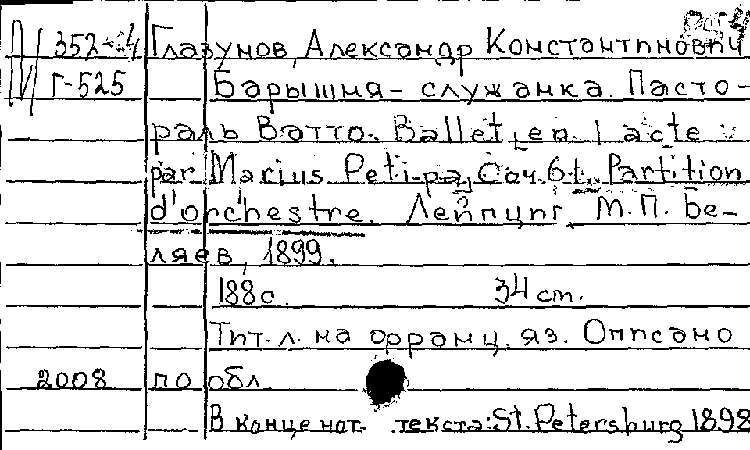 Глазунов, Александр Константинович
Г-525 Барышня-служанка. Пасто-
раль Ватто. Ballet en 1 acte
par Marius Petipa, Соч. 61. Partition
d'orchestre. Лейпциг, М.П. Бе-
ляев, 1899.
188с. 34 cm.
Тит. л. на франц. яз. Описано
2008 по обл.
В конце нот. текста: St. Petersburg 1898